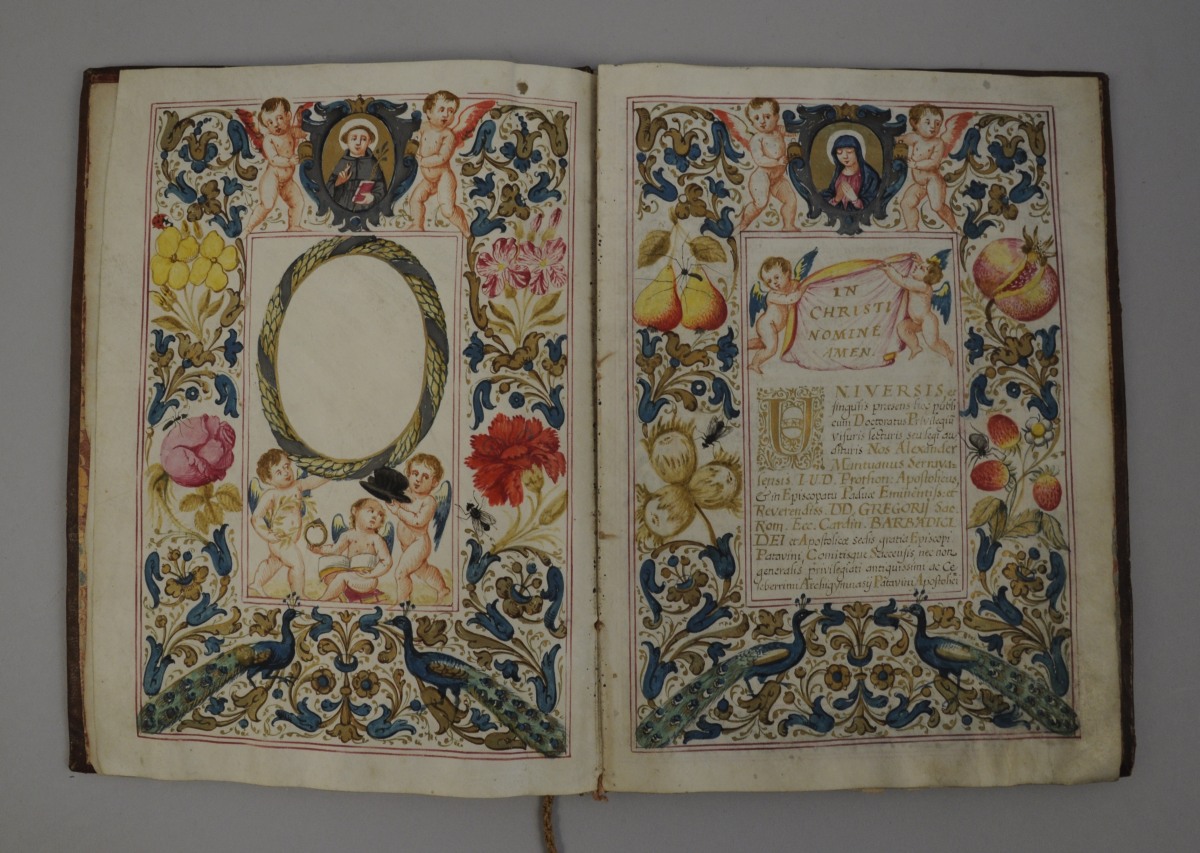 IN
CHRISTI
NOMINE
AMEN.
UNIVERSIS, et
singulis præsens hoc publi
cum Doctoratus Privilegiũ
visuris lecturis seu legi au
dituris Nos Alexander
Mantuanus Serrava
lensis I.U.D. Prothon: Apostolicus,
& in Episcopatu Paduæ Eminentiss: et
Reverendiss. DD. GREGORIJ Sac.
Rom. Ecc. Cardin. BARBADICI
DEI et Apostolicæ sedis gratia Episcopi
Patavini, Comitisque Saccensis nec non
generalis privilegiati antiquissimi ac Ce
leberrimi Archigymnasij Patavini Apostolici